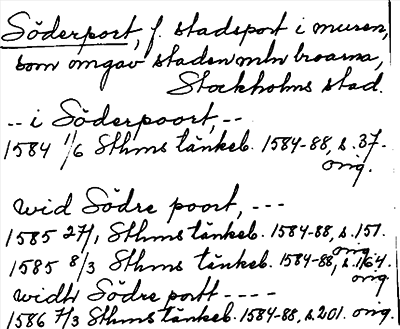 Söderport, f. stadsport i muren,
som omgav staden mln broarna,
Stockholms stad.
-- i Söderpoort, --
1584 11/6 Sthms tänkeb. 1584-88, s. 37.
orig.
wid Södre poort, ---
1585 27/1 Sthms tänkeb. 1584-88, s. 151.
orig.
1585 8/3 Sthms tänkeb. 1584-88, s. 164.
orig.
widh Södre portt ----
1586 7/3 Sthms tänkeb. 1584-88, s. 201. orig.